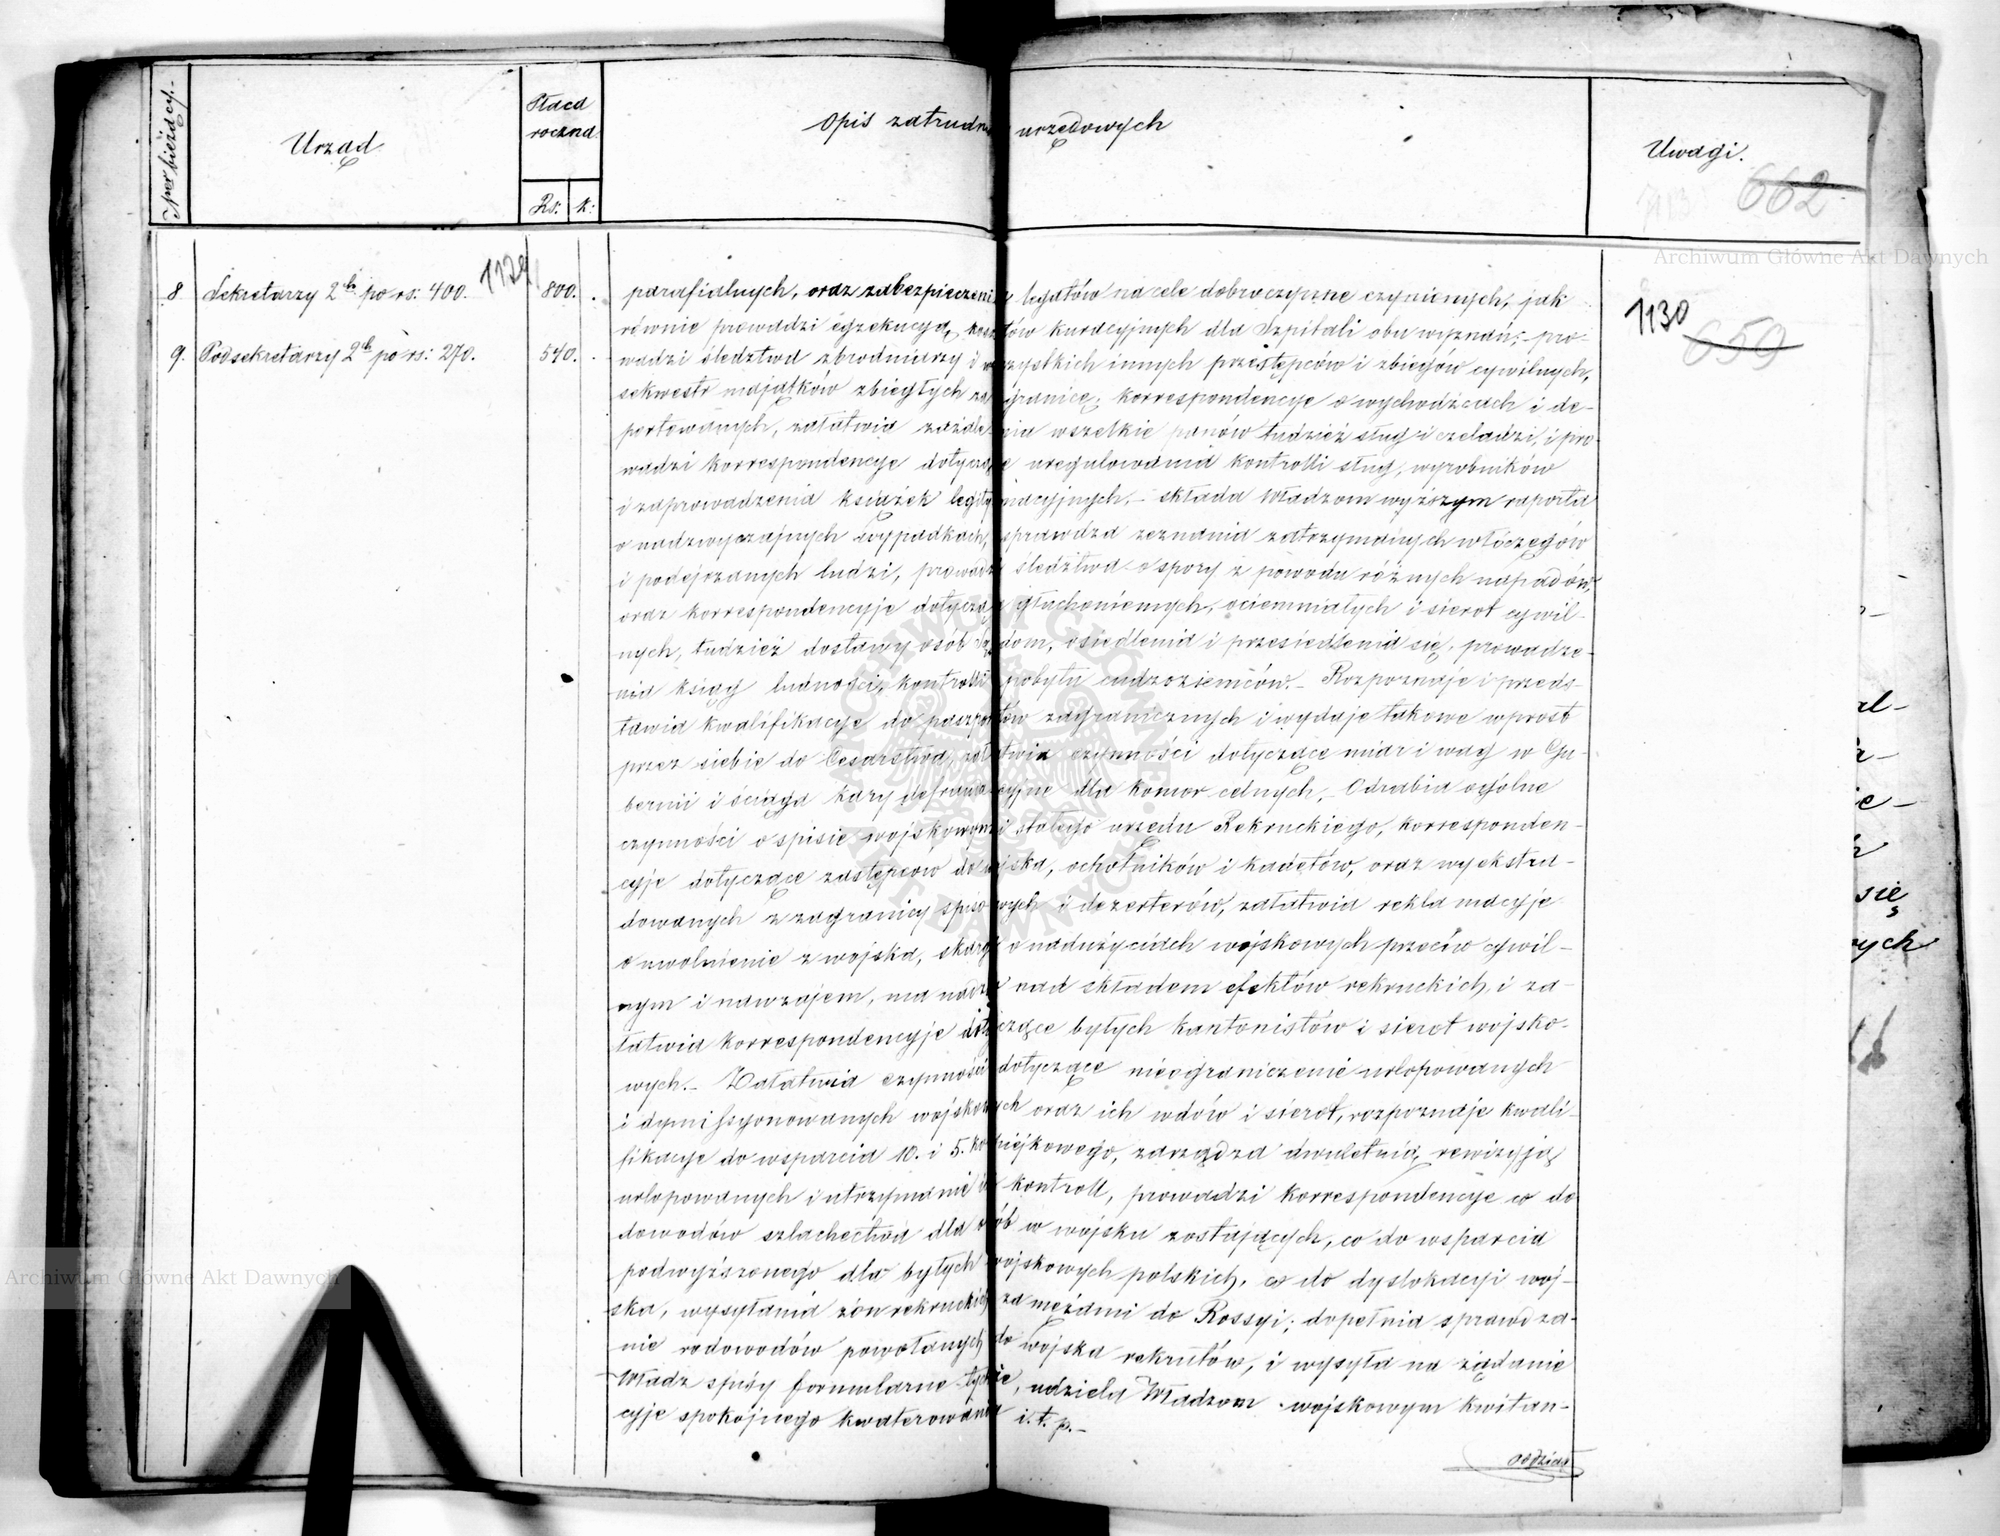 Nner bieżdcy.
Urząd
Płaca
roczna
Rs: k:
Opis zatrudn urzędowych
Uwagi.
662
Archiwum Główne Akt Dawnych
1129
1130
659
8 Sekretarzy 2ch po rs: 400. 800.
9. Podsekretarzy 2ch po rs: 270. 540.
parafialnych, oraz zabezpieczenia legatów na cele dobroczynne czynionych, jak
równie prowadzi egzekucyą kosztów kuracyjnych dla Szpitali obu wyznań; pro-
wadzi śledztwa zbrodniarzy i wszystkich innych przestępców i zbiegów cywilnych,
sekwestr majątków zbiegłych za granicę; korrespondencye o wychodźcach i de-
portowanych, załatwia zażale nia wszelkie panów tudzież sług i czeladzi, i pro-
wadzi korrespondencye dotyczące uregulowania kontrolli sług, wyrobników
i zaprowadzenia książek legitymacyjnych. – składa Władzom wyższym raporta
o nadzwyczajnych wypadkach, sprawdza zeznania zatrzymanych włóczęgów
i podejrzanych ludzi, prowadzi śledztwa o spory z powodu różnych napadów,
oraz korrespondencyje dotyczą głuchoniemych, ociemniałych i sierot cywil-
nych, tudzież dostawy osób Sądom, osiedlenia i przesiedlenia się, prowadze-
nia ksiąg ludności, kontrolli pobytu cudzoziemców. – Rozpoznaje i przeds-
tawia kwalifikacye do paszportów zagranicznych i wydaje takowe wprost
przez siebie do Cesarstwa, załatwia czynności dotyczące miar i wag w Gu-
bernii i ściąga kary defraudacyjne dla komor celnych. – Odrabia ogólne
czynności o spisie wojskowym i stałego urzędu Rekruckiego, korresponden-
cyje dotyczące zastępców do wojska, ochotników i kadetów, oraz wyekstra-
dowanych z zagranicy spisowych i dezerterów, załatwia reklamacyje
o uwolnienie z wojska, skargi o nadużyciach wojskowych przeciw cywil-
nym i nawzajem, ma nadzór nad składem efektów rekruckich, i za-
łatwia korrespondencyje dotyczące byłych kantonistów i sierot wojsko-
wych. – Załatwia czynności dotyczące nieograniczenie urlopowanych
i dymissyonowanych wojskowych oraz ich wdów i sierot, rozpoznaje kwali-
fikacye do wsparcia 10. i 5. kopiejkowego, zarządza dwuletnią rewizyją
urlopowanych i utrzymanie ich kontroll, prowadzi korrespondencye co do
dowodów szlachectwa dla osób w wojsku zostających, co do wsparcia
podwyższonego dla byłych wojskowych polskich, co do dyslokacyi woj-
ska, wysyłania żon rekruckich za mężami do Rossyi; dopełnia sprawdza-
nie rodowodów powołanych do wojska rekrutów, i wysyła na żądanie
Władz spisy formularne tychże, udziela Władzom wojskowym kwitan-
cyje spokojnego kwaterowania i. t. p. –
Archiwum Główne Akt Dawnych